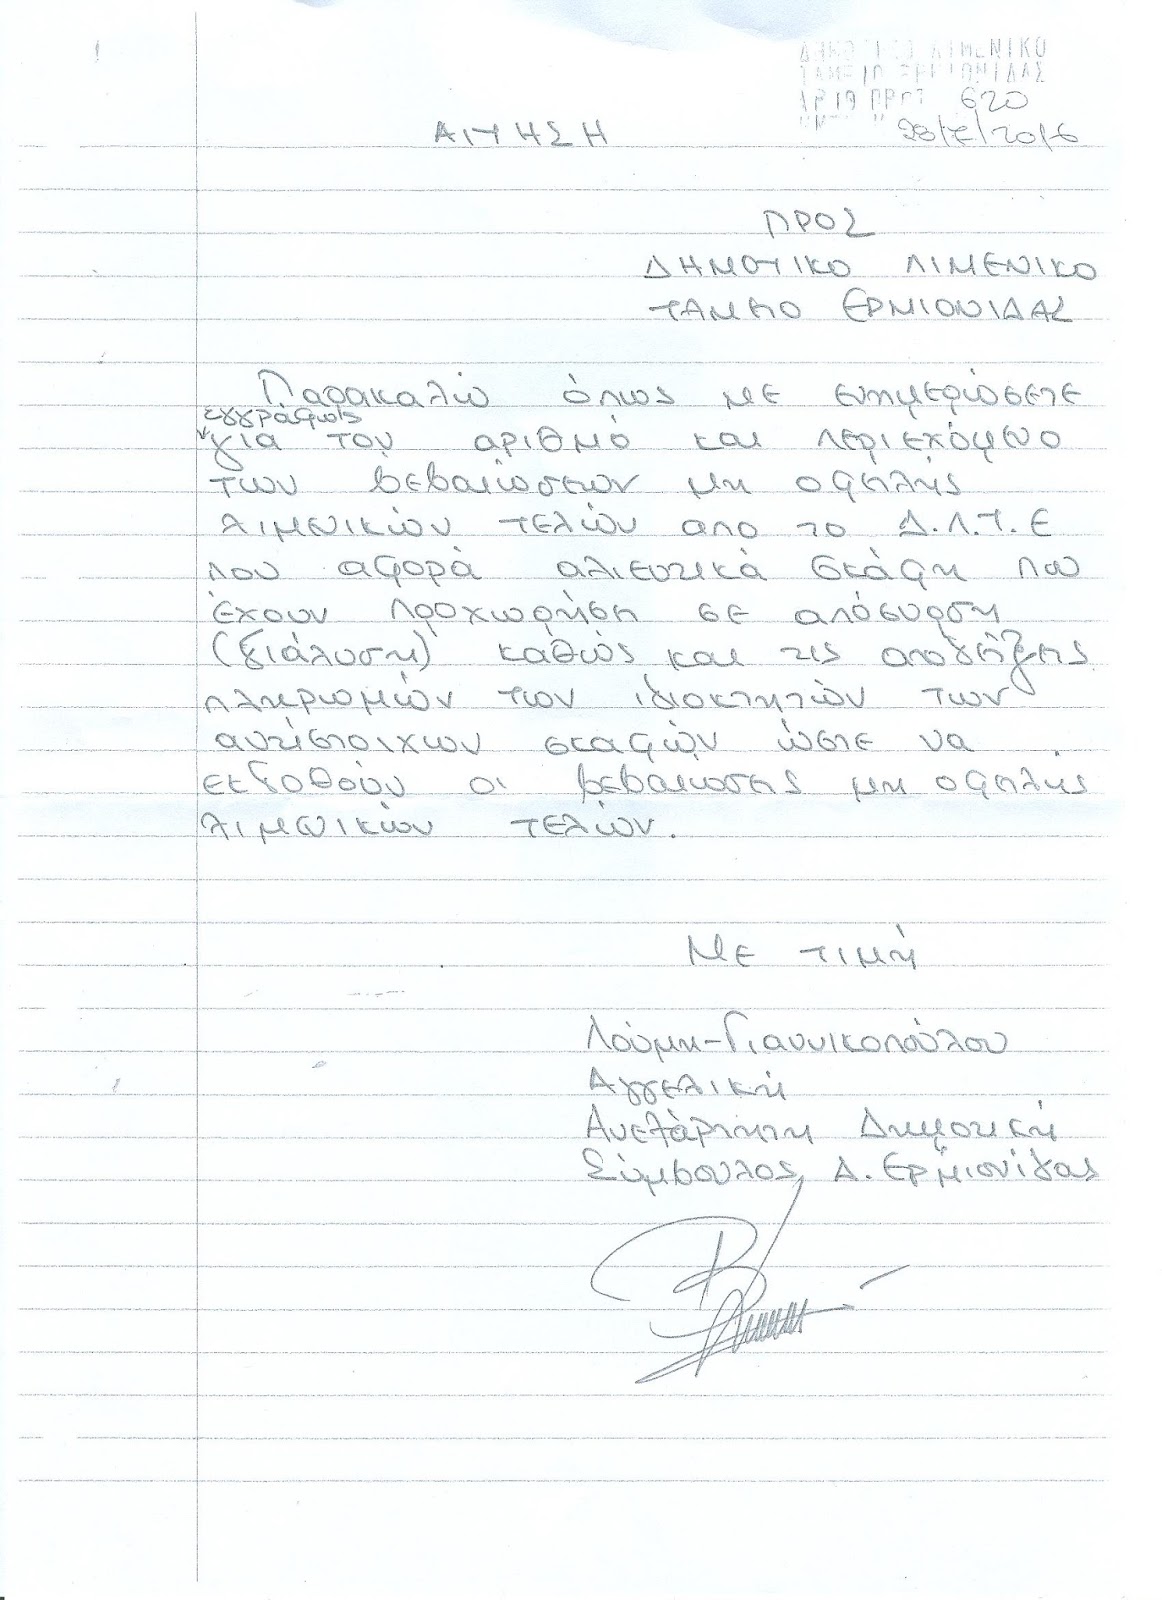 ΔΗΜΟΤΙΚΟ ΛΙΜΕΝΙΚΟ
ΤΑΜΕΙΟ ΕΡΜΙΟΝΙΔΑΣ
ΑΡΙΘ ΠΡΩΤ 620
ΑΙΤΗΣΗ
ΠΡΟΣ
ΔΗΜΟΤΙΚΟ ΛΙΜΕΝΙΚΟ
ΤΑΜΕΙΟ ΕΡΜΙΟΝΙΔΑΣ
Παρακαλώ όπως με ενημερώσετε
εγγράφως
για τον αριθμό και περιεχόμενο
των βεβαιώσεων μη οφειλής
λιμενικών τελών απο το Δ.Λ.Τ.Ε
που αφορά αλιευτικά σκάφη που
έχουν προχωρήση σε απόσυρση
(διάλυση) καθώς και τις αποδήξεις
πληρωμών των ιδιοκτητών των
αντίστοιχων σκαφών ώστε να
εκδοθούν οι βεβαιωσεις μη οφειλής
λιμενικών τελών.
Με τιμή
Λούμη-Γιαννικοπούλου
Αγγελική
Ανεξάρτητη Δημοτική
Σύμβουλος Δ. Ερμιονίδας